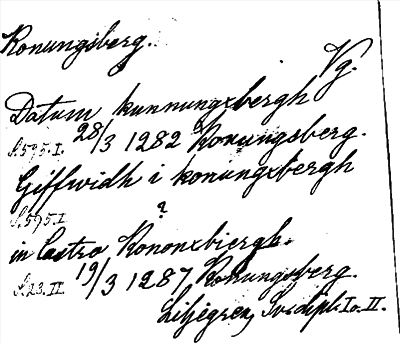 Konungsberg.
Vg.
Datum kunnungxbergh
S.595.I. 28/3 1282 Konungsberg.
Giffwidh i konungxbergh
S.595.I ?
in Castro Kononxbiergh.
S.23.II. 19/3 1287 Konungsberg.
Liljegren, Sv. dipl. I o. II.